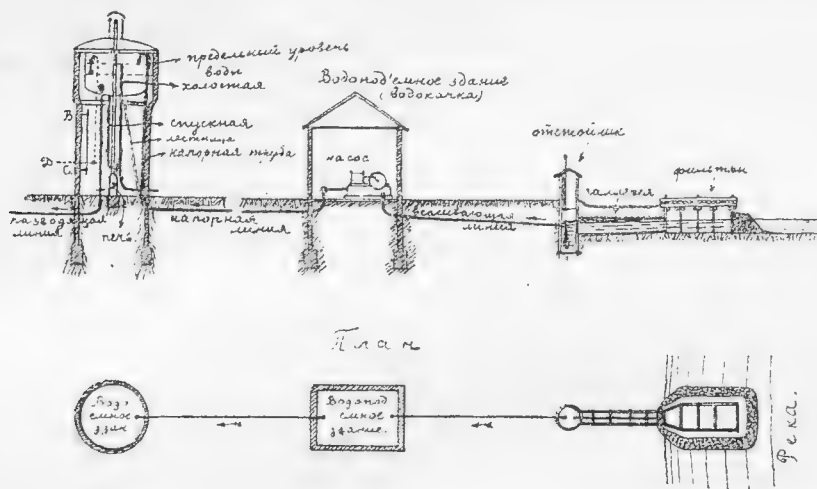 предельный уровень
воды
холостая
спускная
лестница
напорная труба
В
Д
С
разводящая
линия
печь
напорная линия
Водопод'емное здание
(водокачка)
насос
всасывающая
линия
отстойник
галлерея
фильтр
План
Водо
емное
здан
Водопод
емное
здание.
Река.